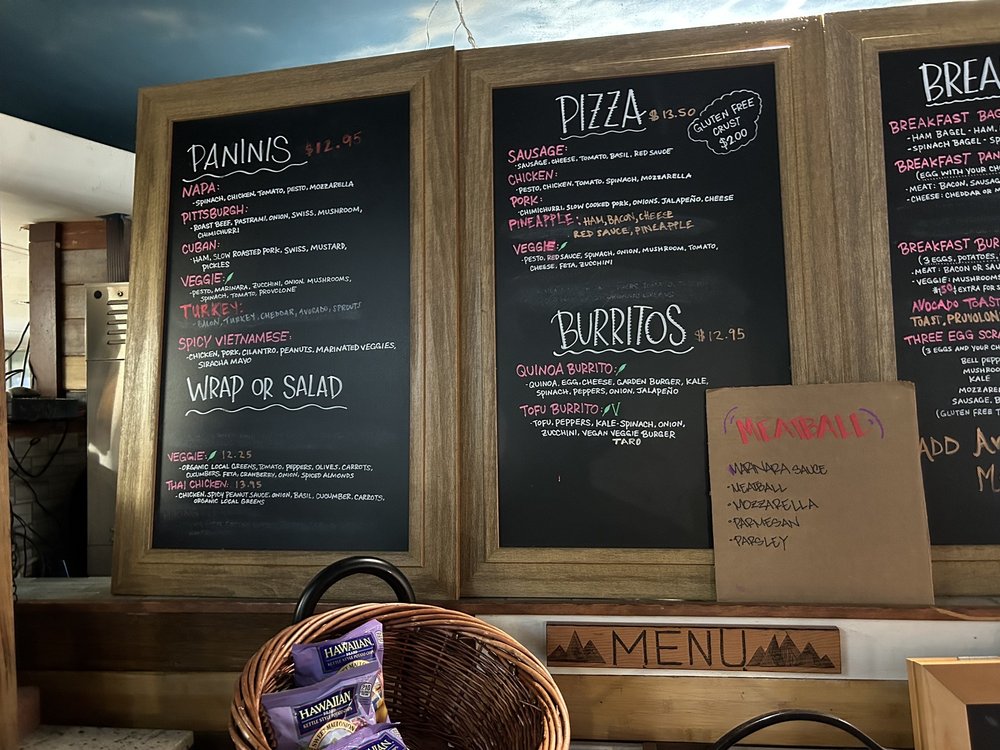 PANINIS $12.95
NAPA:
-SPINACH, CHICKEN, TOMATO, PESTO, MOZZARELLA
PITTSBURGH:
-ROAST BEEF, PASTRAMI, ONION, SWISS, MUSHROOM,
CHIMICHURRI
CUBAN:
-HAM, SLOW ROASTED PORK, SWISS, MUSTARD,
PICKLES
VEGGIE:
-PESTO, MARINARA, ZUCCHINI, ONION, MUSHROOMS,
SPINACH, TOMATO, PROVOLONE
TURKEY:
-BACON, TURKEY, CHEDDAR, AVOCADO, SPROUTS
SPICY VIETNAMESE:
-CHICKEN, PORK, CILANTRO, PEANUTS, MARINATED VEGGIES,
SIRACHA MAYO
WRAP OR SALAD
VEGGIE: 12.25
-ORGANIC LOCAL GREENS, TOMATO, PEPPERS, OLIVES, CARROTS,
CUCUMBERS, FETA, CRANBERRY, ONION, SPICED ALMONDS
THAI CHICKEN: 13.95
-CHICKEN, SPICY PEANUT SAUCE, ONION, BASIL, CUCUMBER, CARROTS,
ORGANIC LOCAL GREENS
PIZZA $13.50
GLUTEN FREE
CRUST
$2.00
SAUSAGE:
-SAUSAGE, CHEESE, TOMATO, BASIL, RED SAUCE
CHICKEN:
-PESTO, CHICKEN, TOMATO, SPINACH, MOZZARELLA
PORK:
-CHIMICHURRI, SLOW COOKED PORK, ONIONS, JALAPEÑO, CHEESE
PINEAPPLE: HAM, BACON, CHEESE
RED SAUCE, PINEAPPLE
VEGGIE:
-PESTO, RED SAUCE, SPINACH, ONION, MUSHROOM, TOMATO,
CHEESE, FETA, ZUCCHINI
BURRITOS $12.95
QUINOA BURRITO:
-QUINOA, EGG, CHEESE, GARDEN BURGER, KALE,
SPINACH, PEPPERS, ONION, JALAPEÑO
TOFU BURRITO: V
-TOFU, PEPPERS, KALE-SPINACH, ONION,
ZUCCHINI, VEGAN VEGGIE BURGER
TARO
BREA
BREAKFAST BAG
-HAM BAGEL - HAM,
-SPINACH BAGEL - SP
BREAKFAST PAN
(EGG WITH YOUR CH
-MEAT: BACON, SAUSAG
-CHEESE: CHEDDAR OR M
BREAKFAST BUR
(3 EGGS, POTATOES,
-MEAT: BACON OR SAU
-VEGGIE: MUSHROOMS
$1.50 EXTRA FOR S
AVOCADO TOAST
TOAST, PROVOLON
THREE EGG SCRA
(3 EGGS AND YOUR CH
BELL PEPP
MUSHROO
KALE
MOZZARE
SAUSAGE, B
(GLUTEN FREE T
ADD AV
M
(MEATBALL)
-MARINARA SAUCE
-MEATBALL
-MOZZARELLA
-PARMESAN
-PARSLEY
MENU
HAWAIIAN
BRAND
KETTLE STYLE POTATO CHIPS
HAWAIIAN
BRAND
KETTLE STYLE POTATO CHIPS
HAWAIIAN